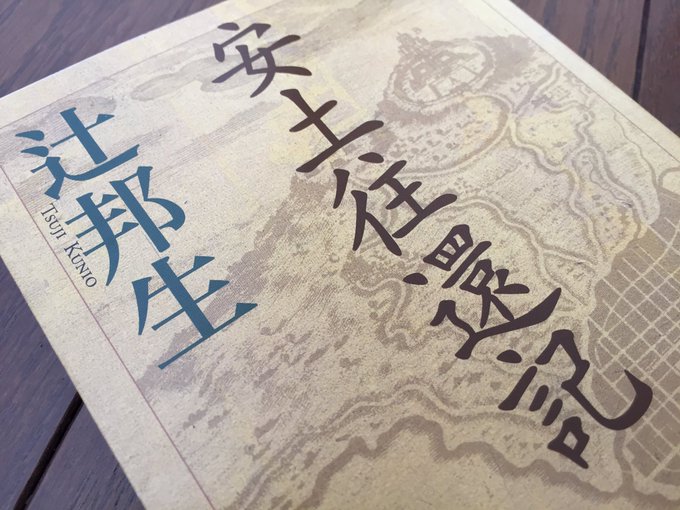 安土往還記
辻邦生
TSUJI KUNIO